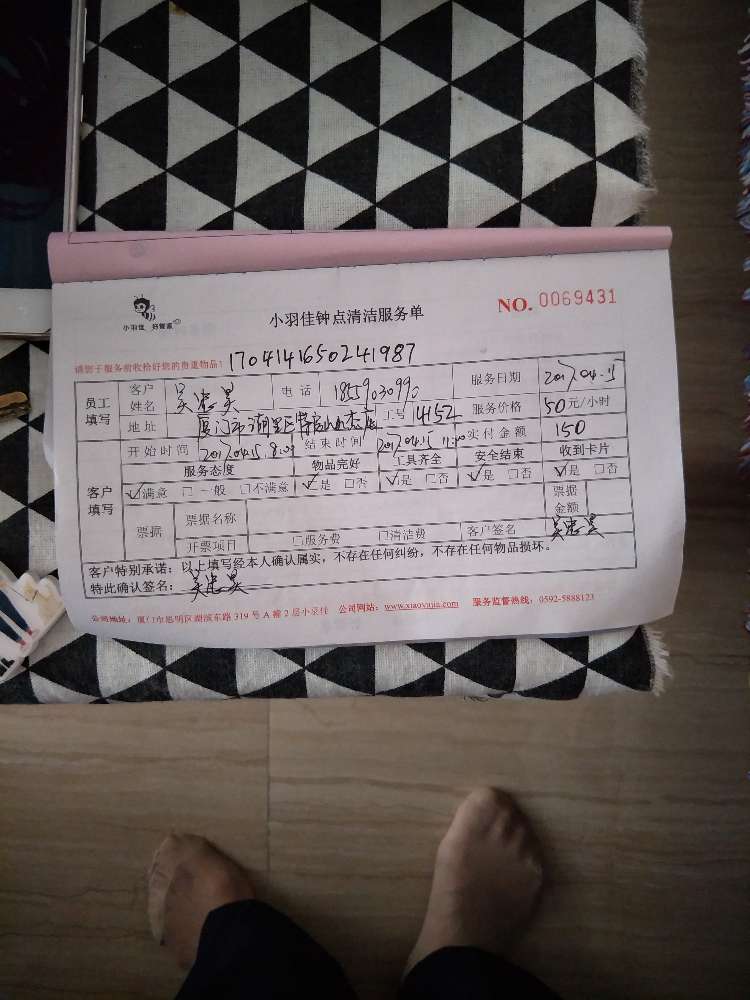 小羽佳 好管家
小羽佳钟点清洁服务单
NO. 0069431
请您于服务前收拾好您的贵重物品：
1704141650241987
员工填写 客户姓名 吴忠昊 电话 18559030990 服务日期 2017.04.15
地址 厦门市湖里区 工号 14152 服务价格 50元/小时
开始时间 2017.04.15 8:00 结束时间 2017.04.15 11:00 实付金额 150
客户填写 服务态度 物品完好 工具齐全 安全结束 收到卡片
☑满意 □一般 □不满意 ☑是 □否 ☑是 □否 ☑是 □否 ☑是 □否
票据 票据名称 票据金额
开票项目 □服务费 □清洁费 客户签名 吴忠昊
客户特别承诺：以上填写经本人确认属实，不存在任何纠纷，不存在任何物品损坏。
特此确认签名：吴忠昊
公司地址：厦门市思明区湖滨东路 319 号 A 幢 2 层小羽佳 公司网站：www.xiaoyujia.com 服务监督热线：0592-5888123